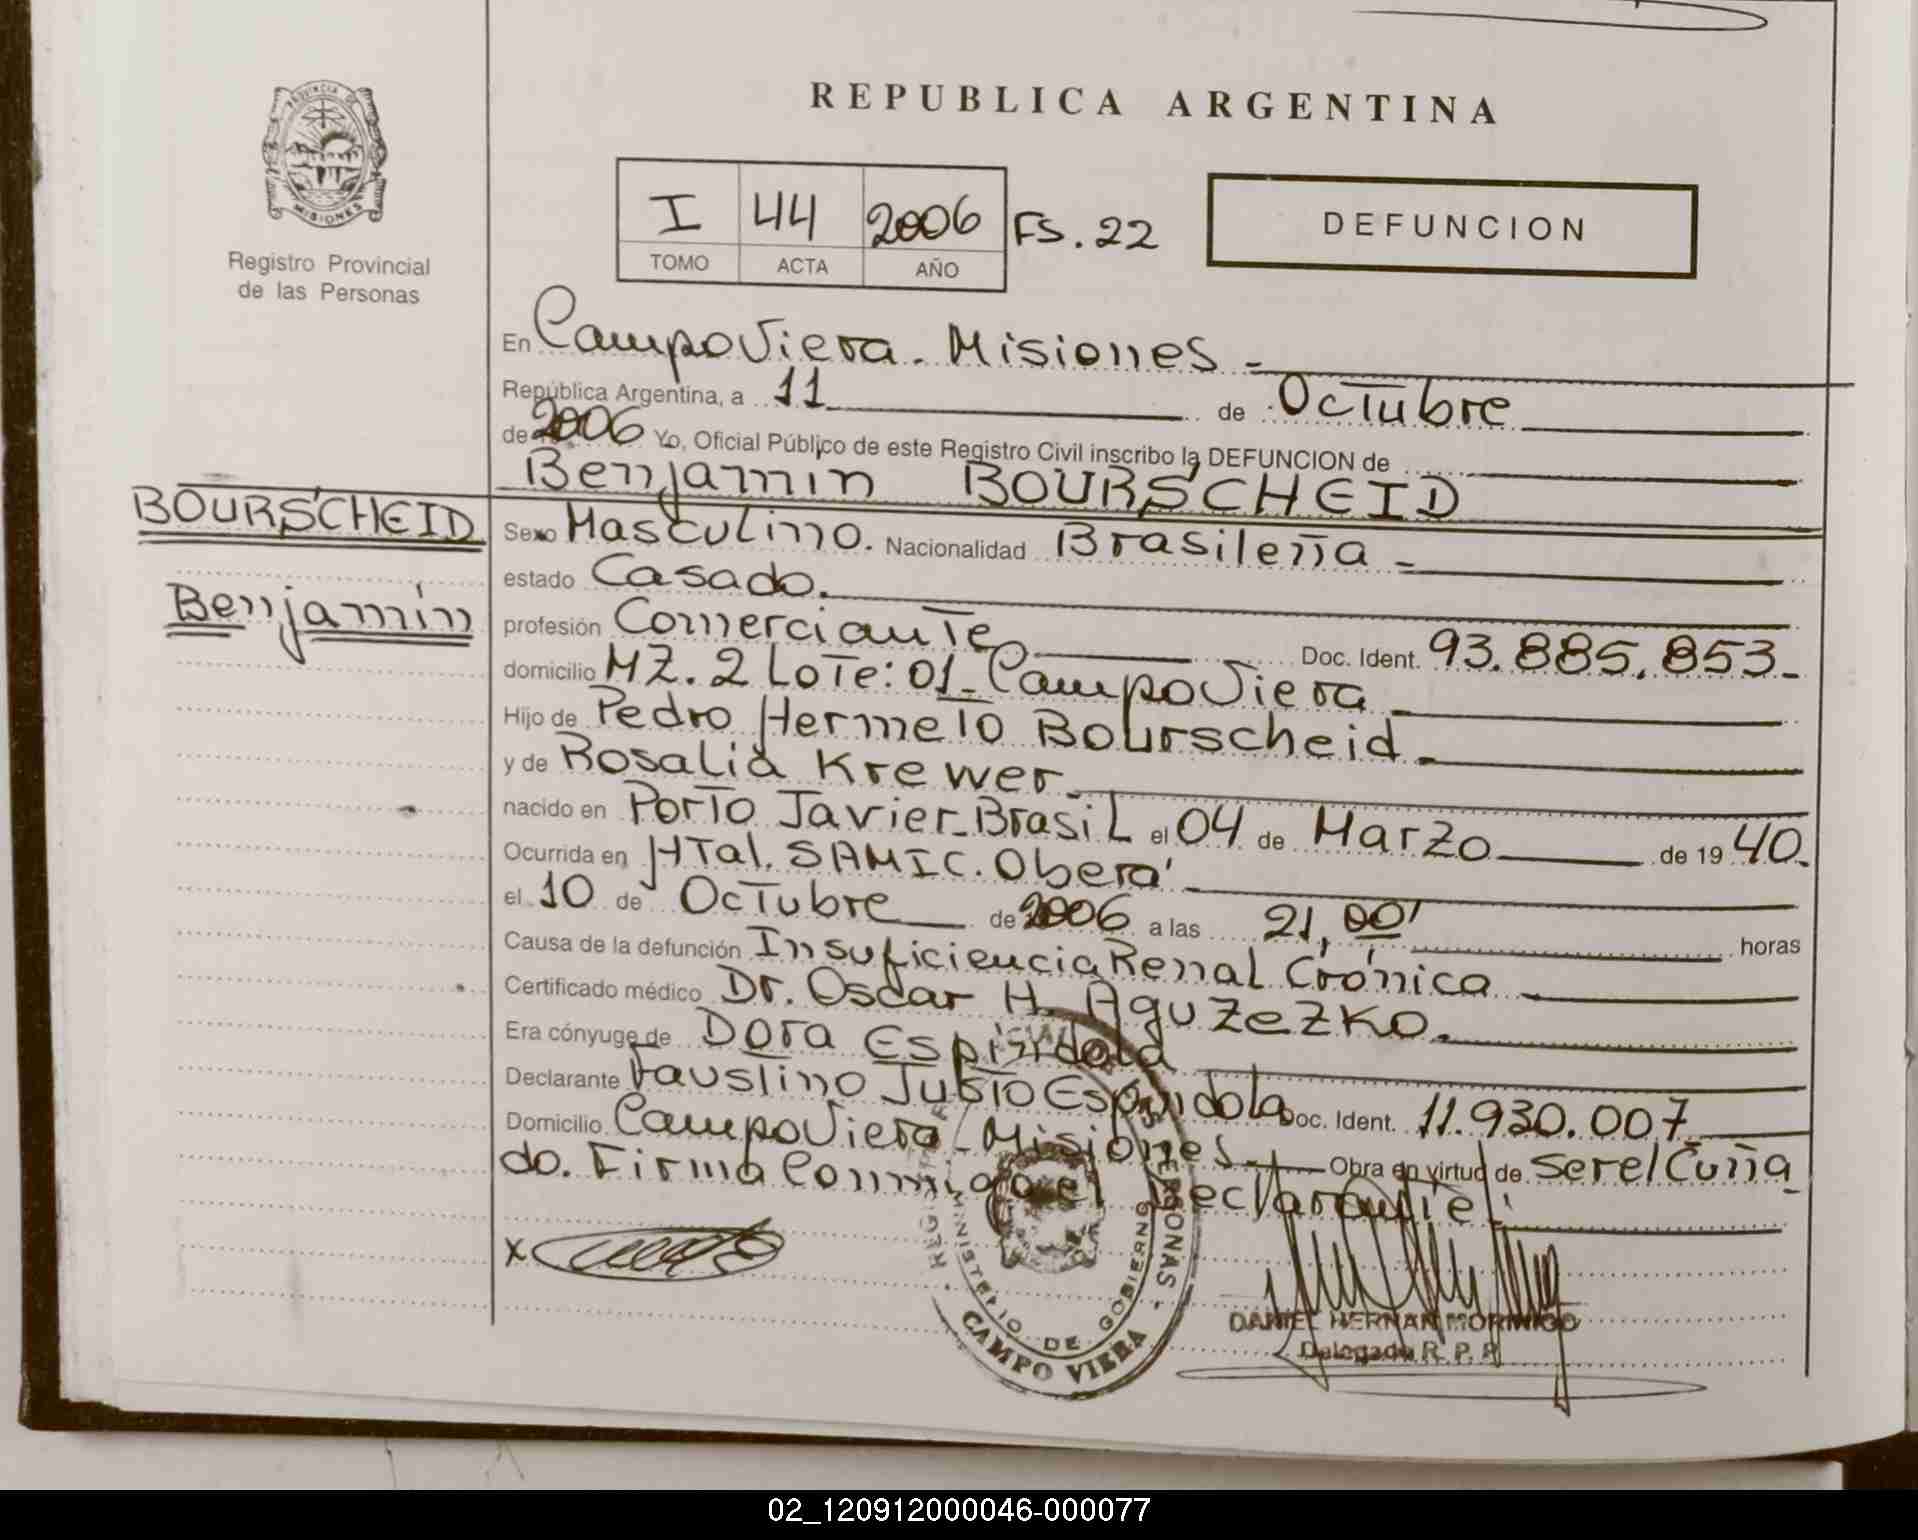 REPUBLICA ARGENTINA
PROVINCIA DE
MISIONES
Registro Provincial
de las Personas
I 44 2006 FS. 22
TOMO ACTA AÑO
DEFUNCION
En Campo Viera. Misiones -
República Argentina, a 11 de Octubre
de 2006 Yo, Oficial Público de este Registro Civil inscribo la DEFUNCION de
Benjamin BOURSCHEID
BOURSCHEID
Benjamín
Sexo Masculino. Nacionalidad Brasileña -
estado Casado.
profesión Comerciante Doc. Ident. 93.885.853-
domicilio MZ. 2 Lote: 01- Campo Viera -
Hijo de Pedro Hermeto Bourscheid -
y de Rosalia Krewer -
nacido en Porto Javier-Brasil el 04 de Marzo de 1940.
Ocurrida en HTal. SAMIC. Oberá -
el 10 de Octubre de 2006 a las 21,00' horas
Causa de la defunción Insuficiencia Renal Crónica -
Certificado médico Dr. Oscar H. Aguzezko.
Era cónyuge de Dora Espindola
Declarante Faustino Espindola Doc. Ident. 11.930.007
Domicilio Campo Viera - Misiones - Obra en virtud de ser el Cuña
do. Firma Conmigo el Declarante!
x
MINISTERIO DE GOBIERNO
CAMPO VIERA
DANIEL HERNAN MORINIGO
Delegado R. P. P.
02_120912000046-000077